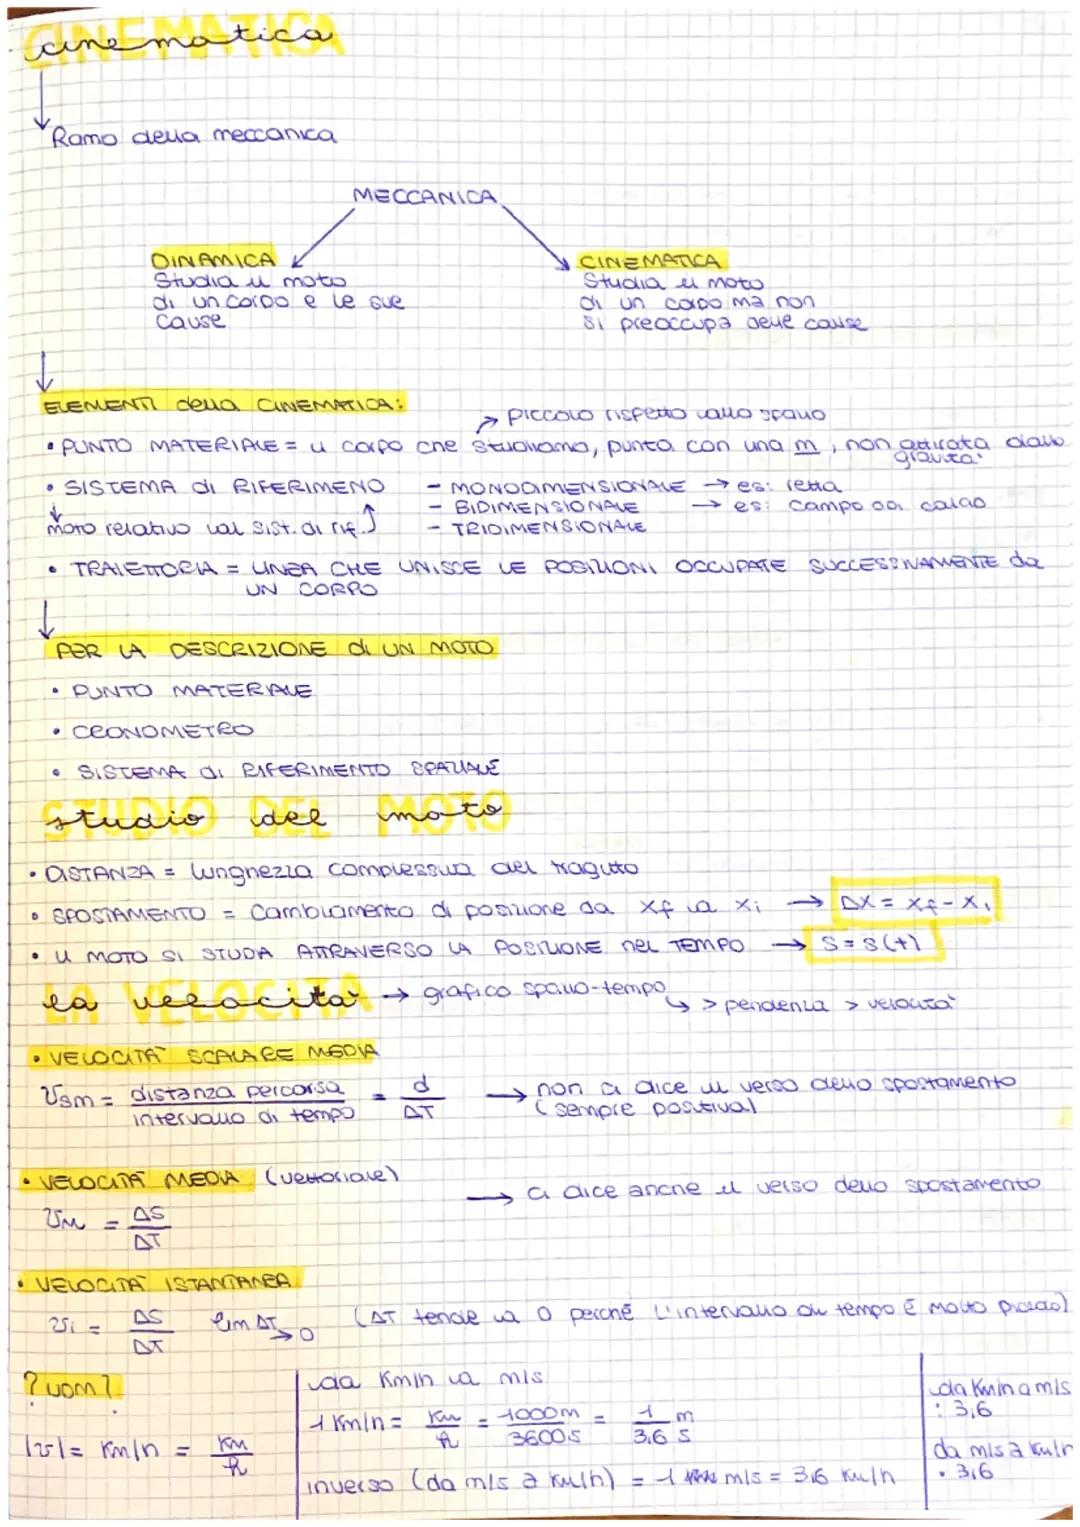 cinematica
Ramo della meccanica
MECCANICA
DINAMICA
Studia il moto
di un corpo e le sue
cause
CINEMATICA
Studia il moto
di un corpo ma non
si preoccupa delle cause
ELEMENTI della CINEMATICA:
piccolo rispetto allo spazio
• PUNTO MATERIALE = il corpo che studiamo, punto con una m, non attirata dalla
gravità
• SISTEMA di RIFERIMENO - MONODIMENSIONALE → es: retta
- BIDIMENSIONALE → es: campo da calcio
moto relativo al sist. di rif. - TRIDIMENSIONALE
• TRAIETTORIA = LINEA CHE UNISCE LE POSIZIONI OCCUPATE SUCCESSIVAMENTE da
UN CORPO
PER LA DESCRIZIONE di UN MOTO
• PUNTO MATERIALE
• CRONOMETRO
• SISTEMA di RIFERIMENTO SPAZIALE
studio del moto
• DISTANZA = lunghezza complessiva del tragitto
• SPOSTAMENTO = cambiamento di posizione da xf a xi → Δx = xf - xi
• IL MOTO SI STUDIA ATTRAVERSO LA POSIZIONE nel TEMPO → S = S(t)
la velocità → grafico spazio-tempo
↳ > pendenza > velocità
• VELOCITÀ SCALARE MEDIA
Vsm = distanza percorsa / intervallo di tempo = d / ΔT → non ci dice il verso dello spostamento
(sempre positiva)
• VELOCITÀ MEDIA (vettoriale)
→ ci dice anche il verso dello spostamento
Vm = ΔS / ΔT
• VELOCITÀ ISTANTANEA
vi = ΔS / ΔT lim ΔT → 0 (ΔT tende a 0 perché l'intervallo di tempo è molto piccolo)
? UDM?
|v| = Km/h = Km / h
da Km/h a m/s
1 Km/h = Km / h = 1000m / 3600s = 1 / 3,6 m / s
inverso (da m/s a km/h) = 1 m/s = 3,6 km/h
da Km/h a m/s
: 3,6
da m/s a km/h
• 3,6